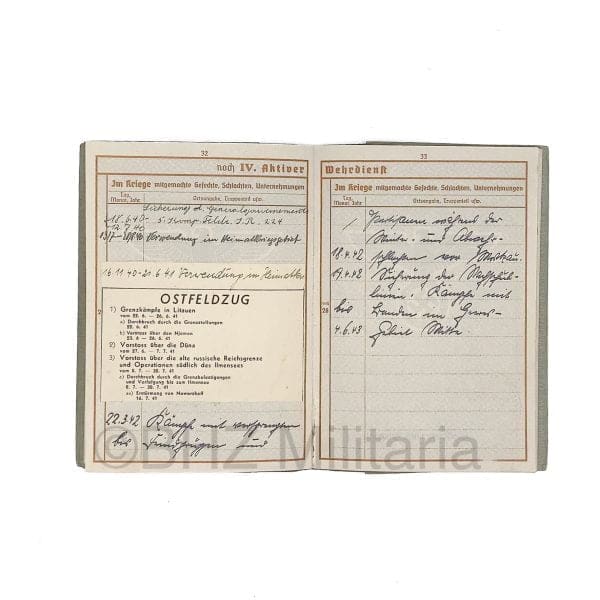 32
noch IV. Aktiver
Im Kriege mitgemachte Gefechte, Schlachten, Unternehmungen
Tag, Monat, Jahr
Ortsangabe, Truppenteil usw.
Sicherung d. Generalgouvernement
18.6.40-
12.7.40
5. Komp. Feldr. J.R. 224
Verwendung im Heimatkriegsgebiet
16.11.40-21.6.41 Verwendung im Heimatkr
OSTFELDZUG
1) Grenzkämpfe in Litauen
vom 22. 6. — 26. 6. 41
a) Durchbruch durch die Grenzstellungen
22. 6. 41
b) Vorstoss über den Njemen
2) Vorstoss über die Düna
vom 27. 6. — 7. 7. 41
3) Vorstoss über die alte russische Reichsgrenze
und Operationen südlich des Ilmensees
c) Durchbruch durch die Grenzbefestigungen
und Verfolgung bis zum Ilmensee
aa) Erstürmung von Noworsheff
22.3.42 Kämpfe mit versprengten
bis Feindzügen und
33
Wehrdienst
Im Kriege mitgemachte Gefechte, Schlachten, Unternehmungen
Tag, Monat, Jahr
Ortsangabe, Truppenteil usw.
Partisanen während der
Winter- und Abwehr-
18.4.42 schlachten vor Moskau.
19.4.42 Sicherung der Nachschub-
linien. Kämpfe mit
bis Banden im
4.6.43 Gebiet Mitte.
28
©BHZ Militaria